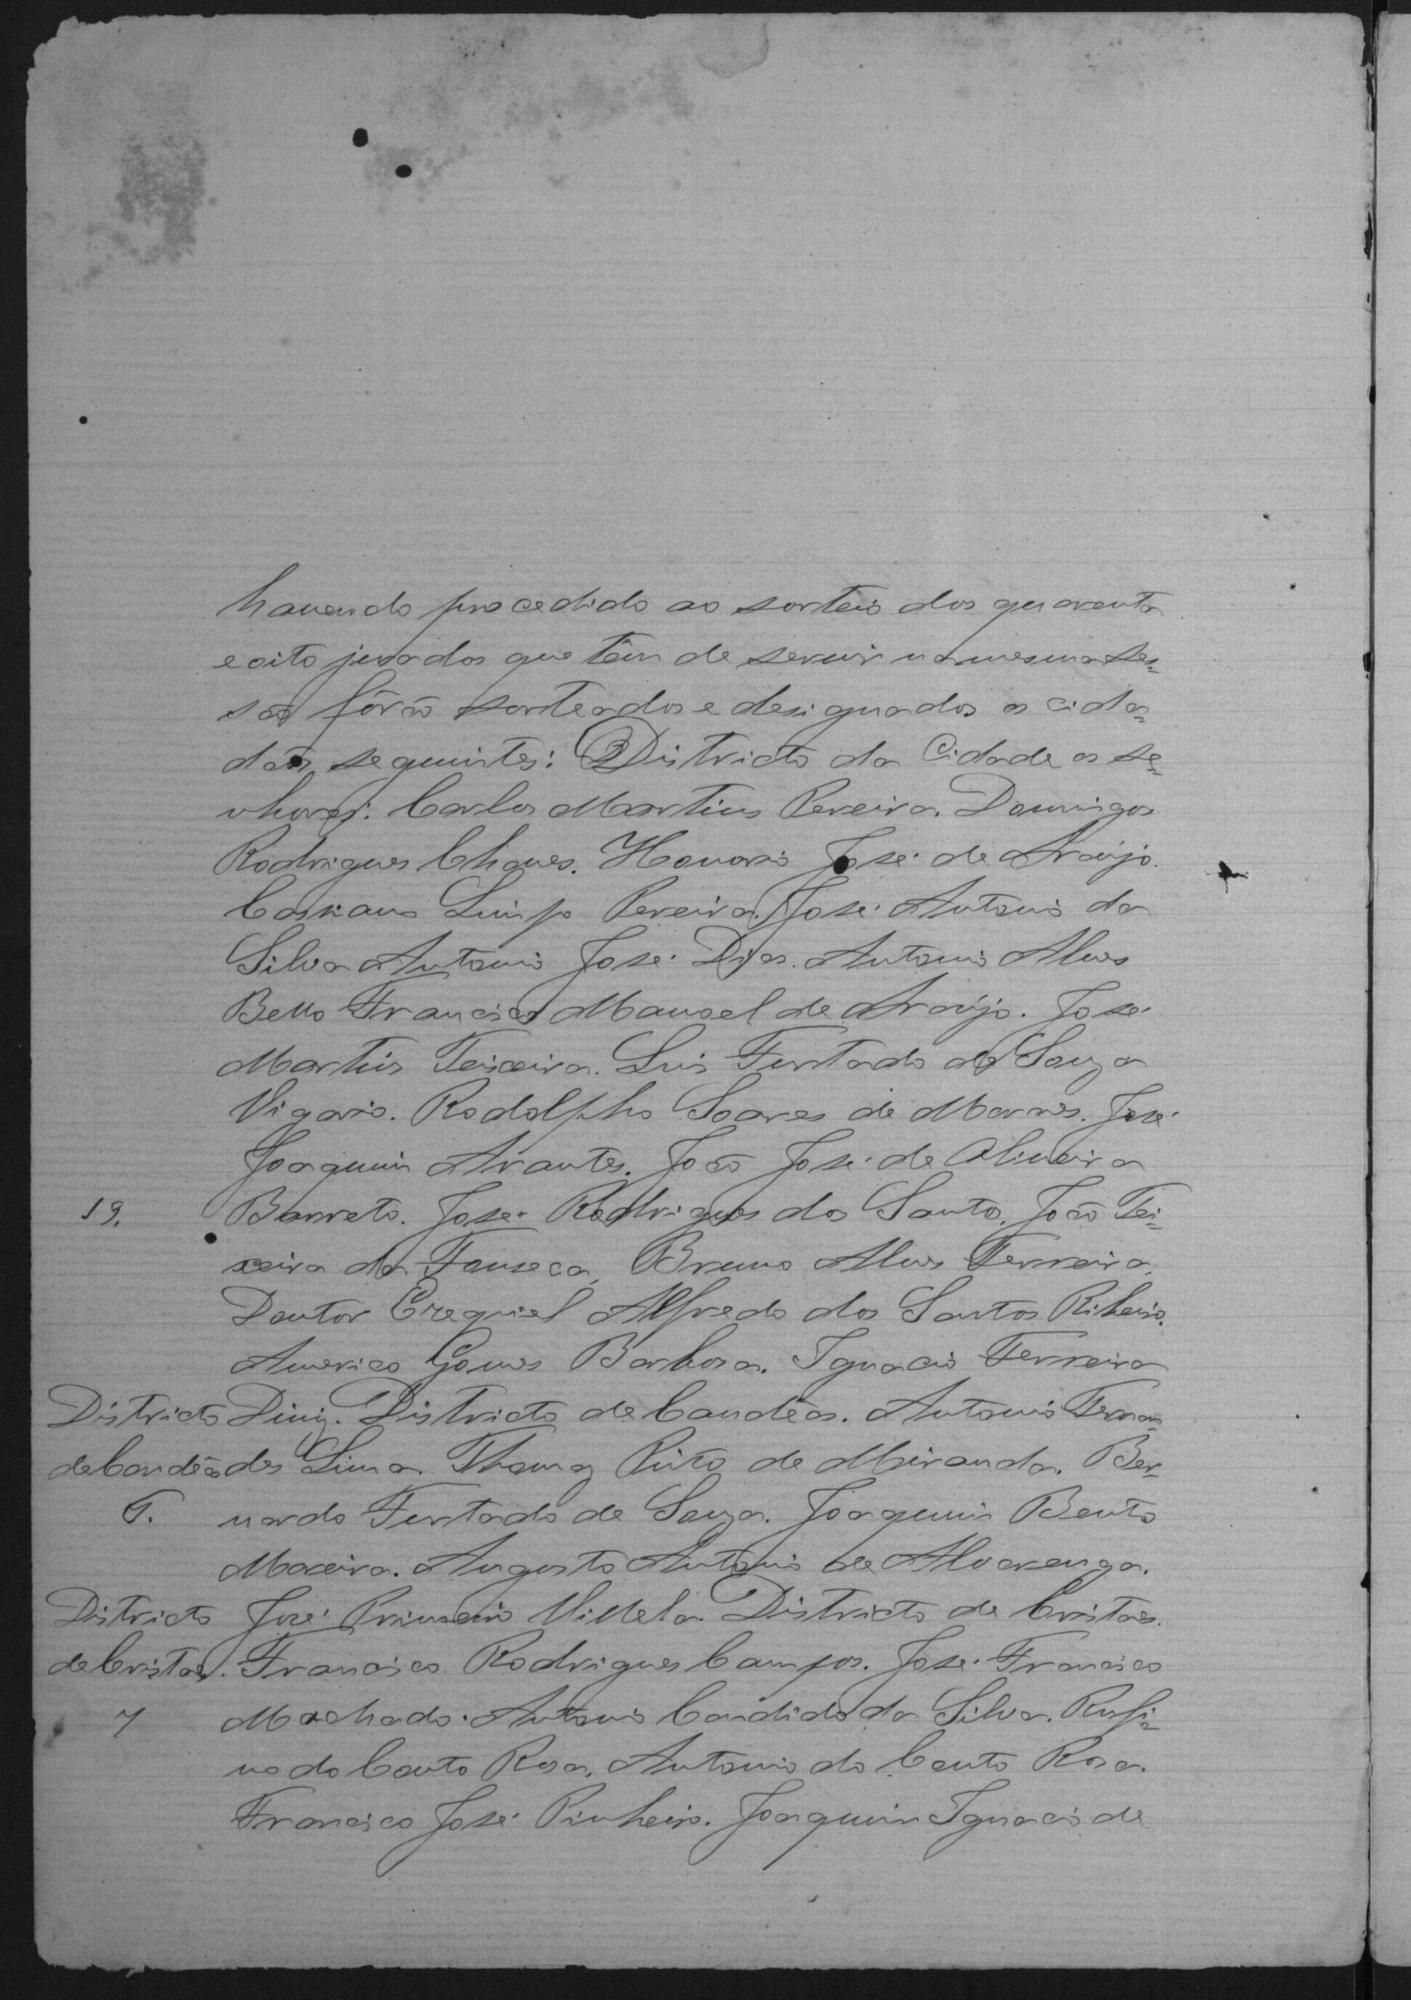 havendo procedido ao sorteio dos quarenta
e oito jurados que têm de servir na mesma ses=
são fôrão sorteados e designados os cida=
dãos seguintes: Districto da Cidade os se=
nhores: Carlos Martins Pereira. Domingos
Rodrigues Chaves. Honorio José de Araujo.
Cassiano Pereira. José Antonio da
Silva Antonio José Dias. Antonio Alves
Bello Francisco Manoel de Araújo. José
Martins Teixeira. Luis Furtado de Souza
Vigario. Rodolpho Soares de Moraes. José
Joaquim Arantes. João José de Oliveira
19. Barreto. José Rodrigues dos Santo. João Tei=
xeira da Fonseca, Bruno Alves Ferreira.
Doutor Ezequiel Alfredo dos Santos Ribeiro.
Americo Gomes Barbosa. Ignacio Ferreira
Districto Diniz. Districto de Candêas. Antonio Fernan=
de Candêas des Lima. Thomaz Pinto de Miranda. Ber=
nardo Furtado de Souza. Joaquim Bento
Moreira. Augusto Antonio de Alvarenga.
Districto José Villela. Districto de Cristaes.
de Cristaes. Francisco Rodrigues Campos. José Francisco
7 Machado. Antonio Candido da Silva. Rufi=
no do Couto Rosa, Antonio do Couto Rosa.
Francisco José Pinheiro. Joaquim Ignacio de